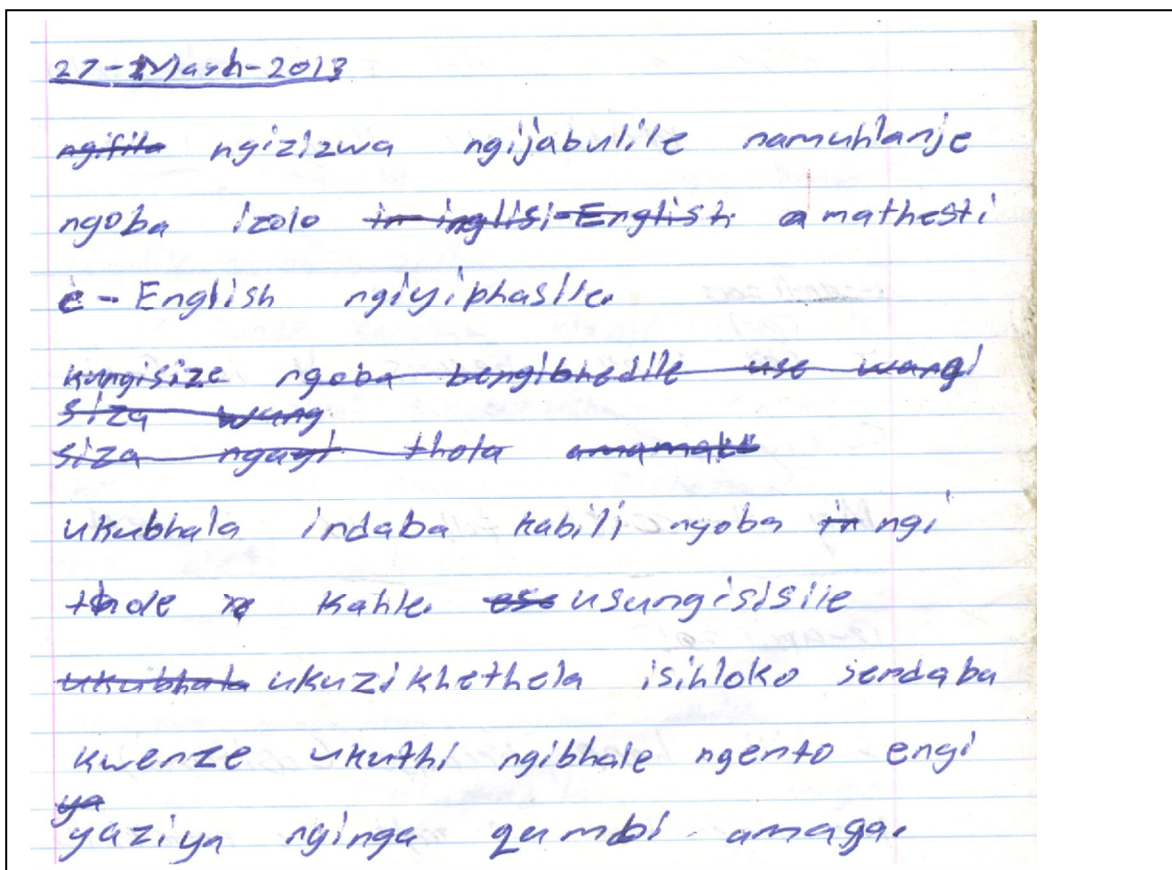 27-Mash-2013
ngifila ngizizwa ngijabulile namuhlanje
ngoba izolo in inglisi-English amathesti
e-English ngiyiphasile.
kungisize ngoba bengibhedile use wangi
siza wung
siza ngagi thola amamaki
ukubhala indaba kabili ngoba in ngi
thole kahle. ese usungisisile
ukubhala ukuzikhethela isihloko sendaba
kwenze ukuthi ngibhale ngento engi
ya
yaziya nginga qumbi amaga.